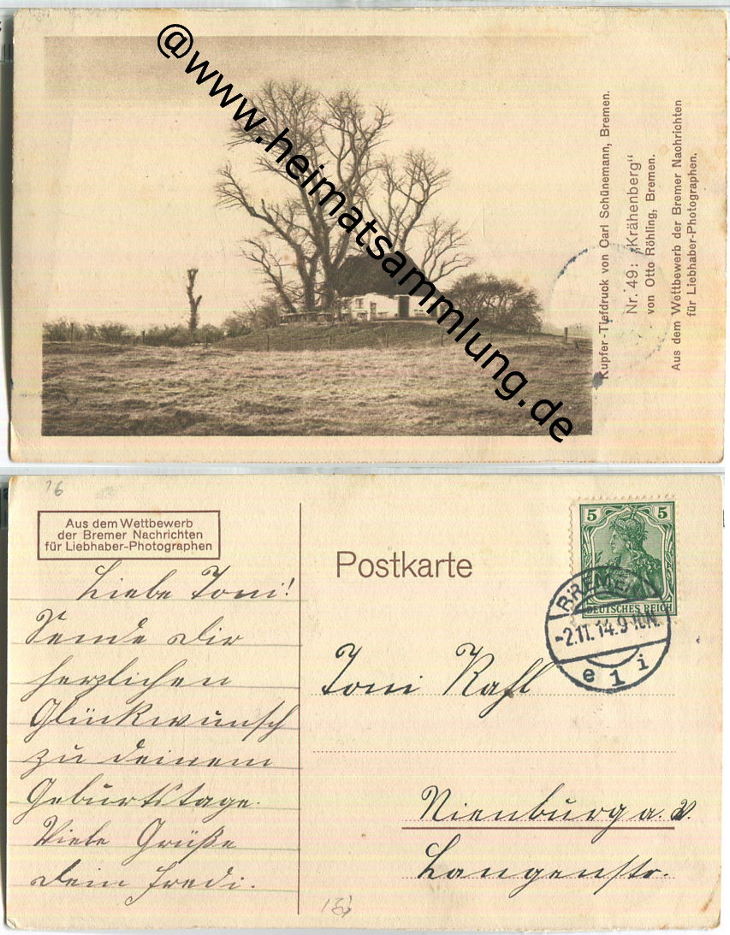 @www.heimatsammlung.de
Kupfer-Tiefdruck von Carl Schünemann, Bremen.
Nr. 49: „Krähenberg"
von Otto Röhling, Bremen.
Aus dem Wettbewerb der Bremer Nachrichten
für Liebhaber-Photographen.
Aus dem Wettbewerb
der Bremer Nachrichten
für Liebhaber-Photographen
Postkarte
5 5
DEUTSCHES REICH
BREMEN
-2.11.14.9-10.N.
e 1 i
Liebe Toni!
Sende Dir
herzlichen
Glückwunsch
zu deinem
Geburtstage.
Viele Grüße
Dein Fredi.
Toni Rahl
Nienburg a. W.
Langenstr.